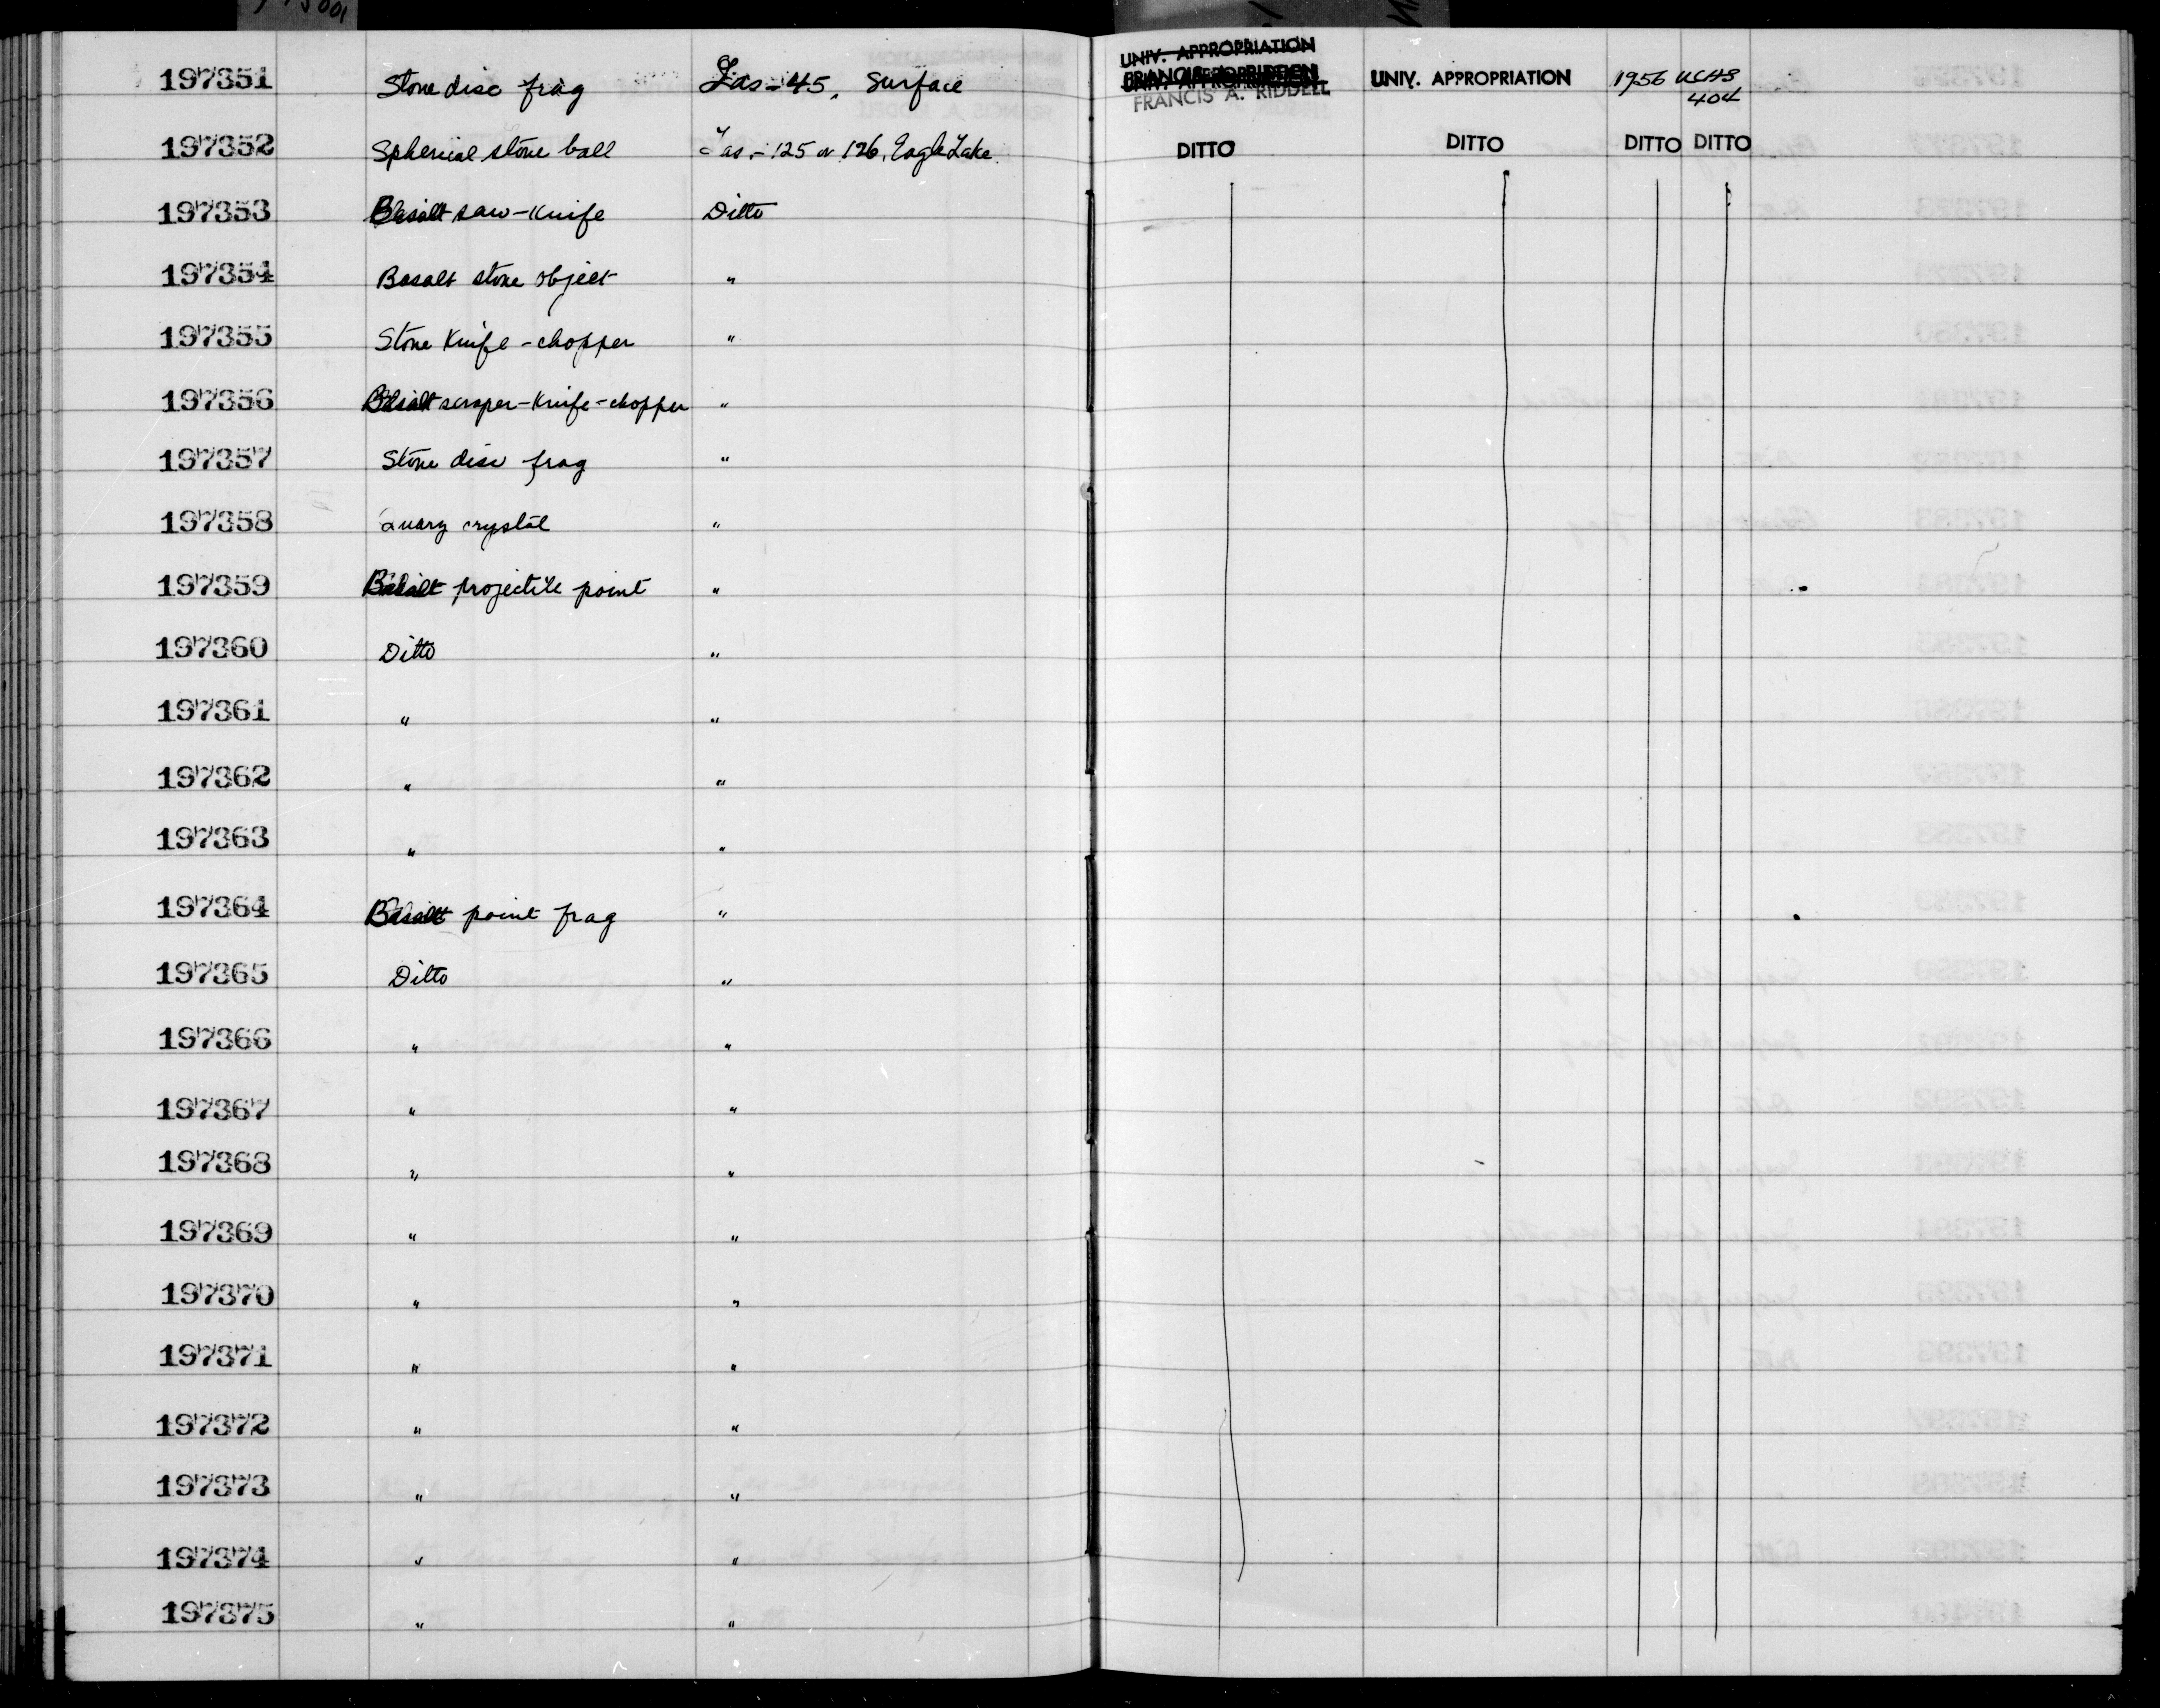 197351 Stone disc frag Las-45, Surface UNIV. APPROPRIATION FRANCIS A. RIDDELL UNIV. APPROPRIATION 1956 UCAS 404
197352 Spherical stone ball Las-125 or 126, Eagle Lake. DITTO DITTO DITTO DITTO
197353 Basalt saw-knife Ditto
197354 Basalt stone object "
197355 Stone Knife-chopper "
197356 Basalt scraper-knife-chopper "
197357 Stone disc frag "
197358 Quarz crystal "
197359 Basalt projectile point "
197360 Ditto "
197361 " "
197362 " "
197363 " "
197364 Basalt point frag "
197365 Ditto "
197366 " "
197367 " "
197368 " "
197369 " "
197370 " "
197371 " "
197372 " "
197373 " "
197374 " "
197375 " "